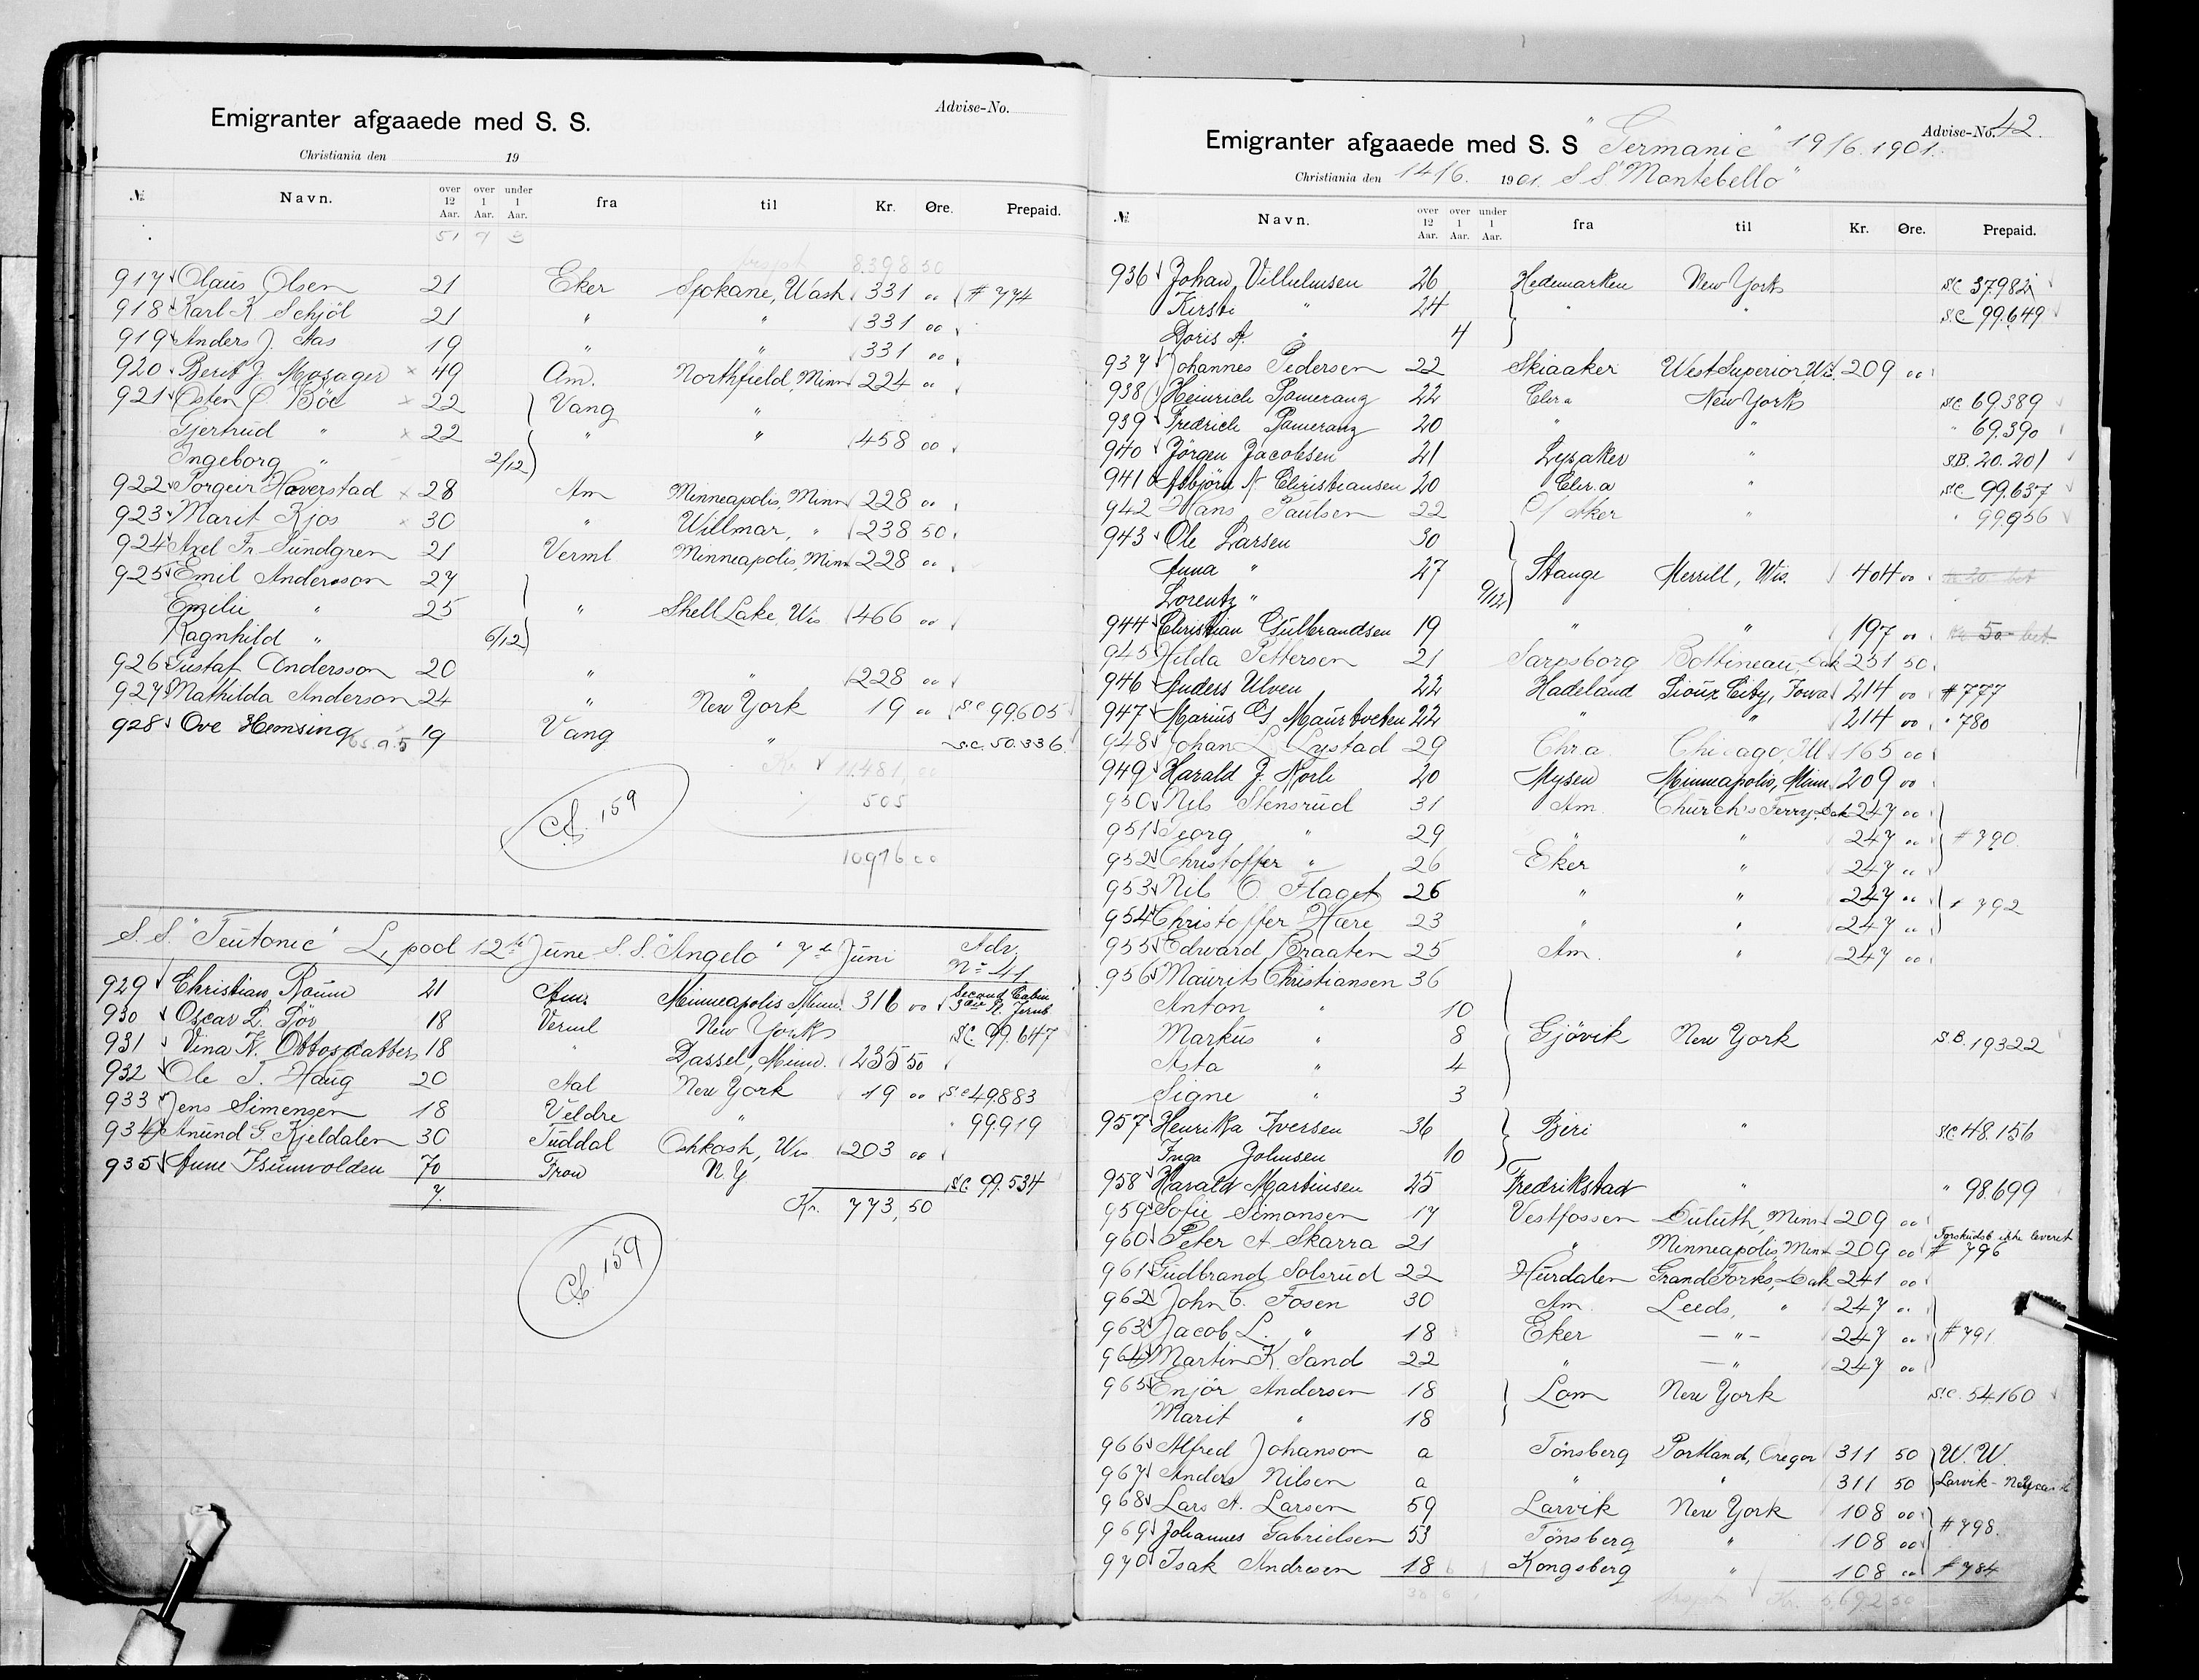 Emigranter afgaaede med S. S.
Advise-No.
Christiania den 19
№ Navn. over 12 Aar. over 1 Aar. under 1 Aar. fra til Kr. Øre. Prepaid.
51 7 3
8.398 50
917 Olaus Olsen 21 Eker Spokane, Wash 331 00 # 774
918 Karl K. Schjöl 21 " " 331 00
919 Anders J. Aas 19 " " 331 00
920 Berit J. Mosager 49 Am. Northfield, Minn 224 00
921 Østen O. Böe 22 Vang "
Gjertrud " 22 " " 458 00
Ingeborg " 2/12
922 Torgeir Haverstad 28 Am Minneapolis, Minn 228 00
923 Marit Kjos 30 " Willmar, " 238 50
924 Axel Fr. Sundgren 21 Verml. Minneapolis, Minn 228 00
925 Emil Andersson 27
Emilie " 25 " Shell Lake, Wis 466 00
Ragnhild " 6/12
926 Gustaf Andersson 20 " " 228 00
927 Mathilda Anderson 24 " New York 19 00 S.C 99.605
928 Ove Hemsing 19 Vang " S.C. 50.336
Kr. 11.481,00
% 505
10976 00
159
S.S. "Teutonic" L.pool 12te June S.S. "Angelo" 7de Juni Adv. No 41
929 Christian Röum 21 Am. Minneapolis Minn. 316 00 Second Cabin
930 Oscar L. Tör 18 Verml New York S.C. 99.647
931 Vina K. Ottosdatter 18 " Dassel, Minn. 235 50
932 Ole T. Haug 20 Aal New York 19 00 S.C 49883
933 Jens Simensen 18 Veldre " " 99919
934 Anund G. Kjeldalen 30 Tuddal Oshkosh, Wis 203 00
935 Anne Isumvolden 70 Fron N.Y S.C. 99.534
7. Kr. 773,50
159
Emigranter afgaaede med S. S "Germanic" 19/6.1901.
Advise-No. 42.
Christiania den 14/6. 1901. S S "Montebello"
№ Navn. over 12 Aar. over 1 Aar. under 1 Aar. fra til Kr. Øre. Prepaid.
936 Johan Vilhelmsen 26 Hedemarken New York S.C. 37982
Kirsti " 24 " " S.C. 99.649
Doris A. " 4
937 Johannes Pedersen 22 Skiaaker West Superior, Wis. 209 00
938 Heinrich Pomeranz 22 Chr.a New York S.C. 69.389
939 Fredrich Pomeranz 20 " " " 69.390
940 Jörgen Jacobsen 21 Lysaker " S.B. 20.201
941 Asbjörn N Christiansen 20 Chr.a " S.C. 99.637
942 Hans Paulsen 22 Ø/ Aker " " 99.956
943 Ole Larsen 30
Anna " 27 Stange Merrill, Wis. 404 00
Lorentz " 9/12
944 Christian Gulbrandsen 19 " " 197 00 Kr 50 bet
945 Hilda Pettersen 21 Sarpsborg Bottineau, Dak 251 50
946 Anders Ulven 22 Hadeland Sioux City, Iowa 214 00 # 777
947 Marius G Maurtveten 22 " " 214 00 " 780
948 Johan L. Lystad 29 Chr.a. Chicago, Ill 165 00
949 Harald J. Norli 20 Mysen Minneapolis, Minn. 209 00
950 Nils Stensrud 31 Am. Church's Ferry, Dak 247 00
951 Georg " 29 " " 247 00 # 790.
952 Christoffer " 26 Eker " 247 00
953 Nils O. Flaget 26 " " 247 00 # 792
954 Christoffer Hære 23 " " 247 00
955 Edward Braaten 25 Am. " 247 00
956 Maurits Christiansen 36
Anton " 10
Markus " 8 Gjövik New York S.B. 19322
Asta " 4
Signe " 3
957 Henrikka Iversen 36 Biri " S.C. 48.156
Inga Johnsen 10
958 Harald Martinsen 25 Fredrikstad " " 98.699
959 Sofie Simonsen 17 Vestfossen Duluth, Minn 209 00
960 Peter A Skarra 21 " Minneapolis, Minn 209 00 Forskudsb. ikke leveret # 796
961 Gudbrand Solsrud 22 Hurdalen Grand Forks, Dak 241 00
962 John C. Fosen 30 Am. Leeds, " 247 00
963 Jacob L. " 18 Eker — " — 247 00 # 791
964 Martin K. Sand 22 " — " 247 00
965 Enjör Andersen 18 Lom New York S.C. 54.160
Marit " 18
966 Alfred Johanson a Tönsberg Portland, Oregon 311 50 W. W.
967 Anders Nilsen a " " 311 50
968 Lars A. Larsen 59 Larvik New York 108 00
969 Johannes Gabrielsen 53 Tönsberg " 108 00 # 798.
970 Isak Andresen 18 Kongsberg " 108 00 # 784
Kr. 5,692 50